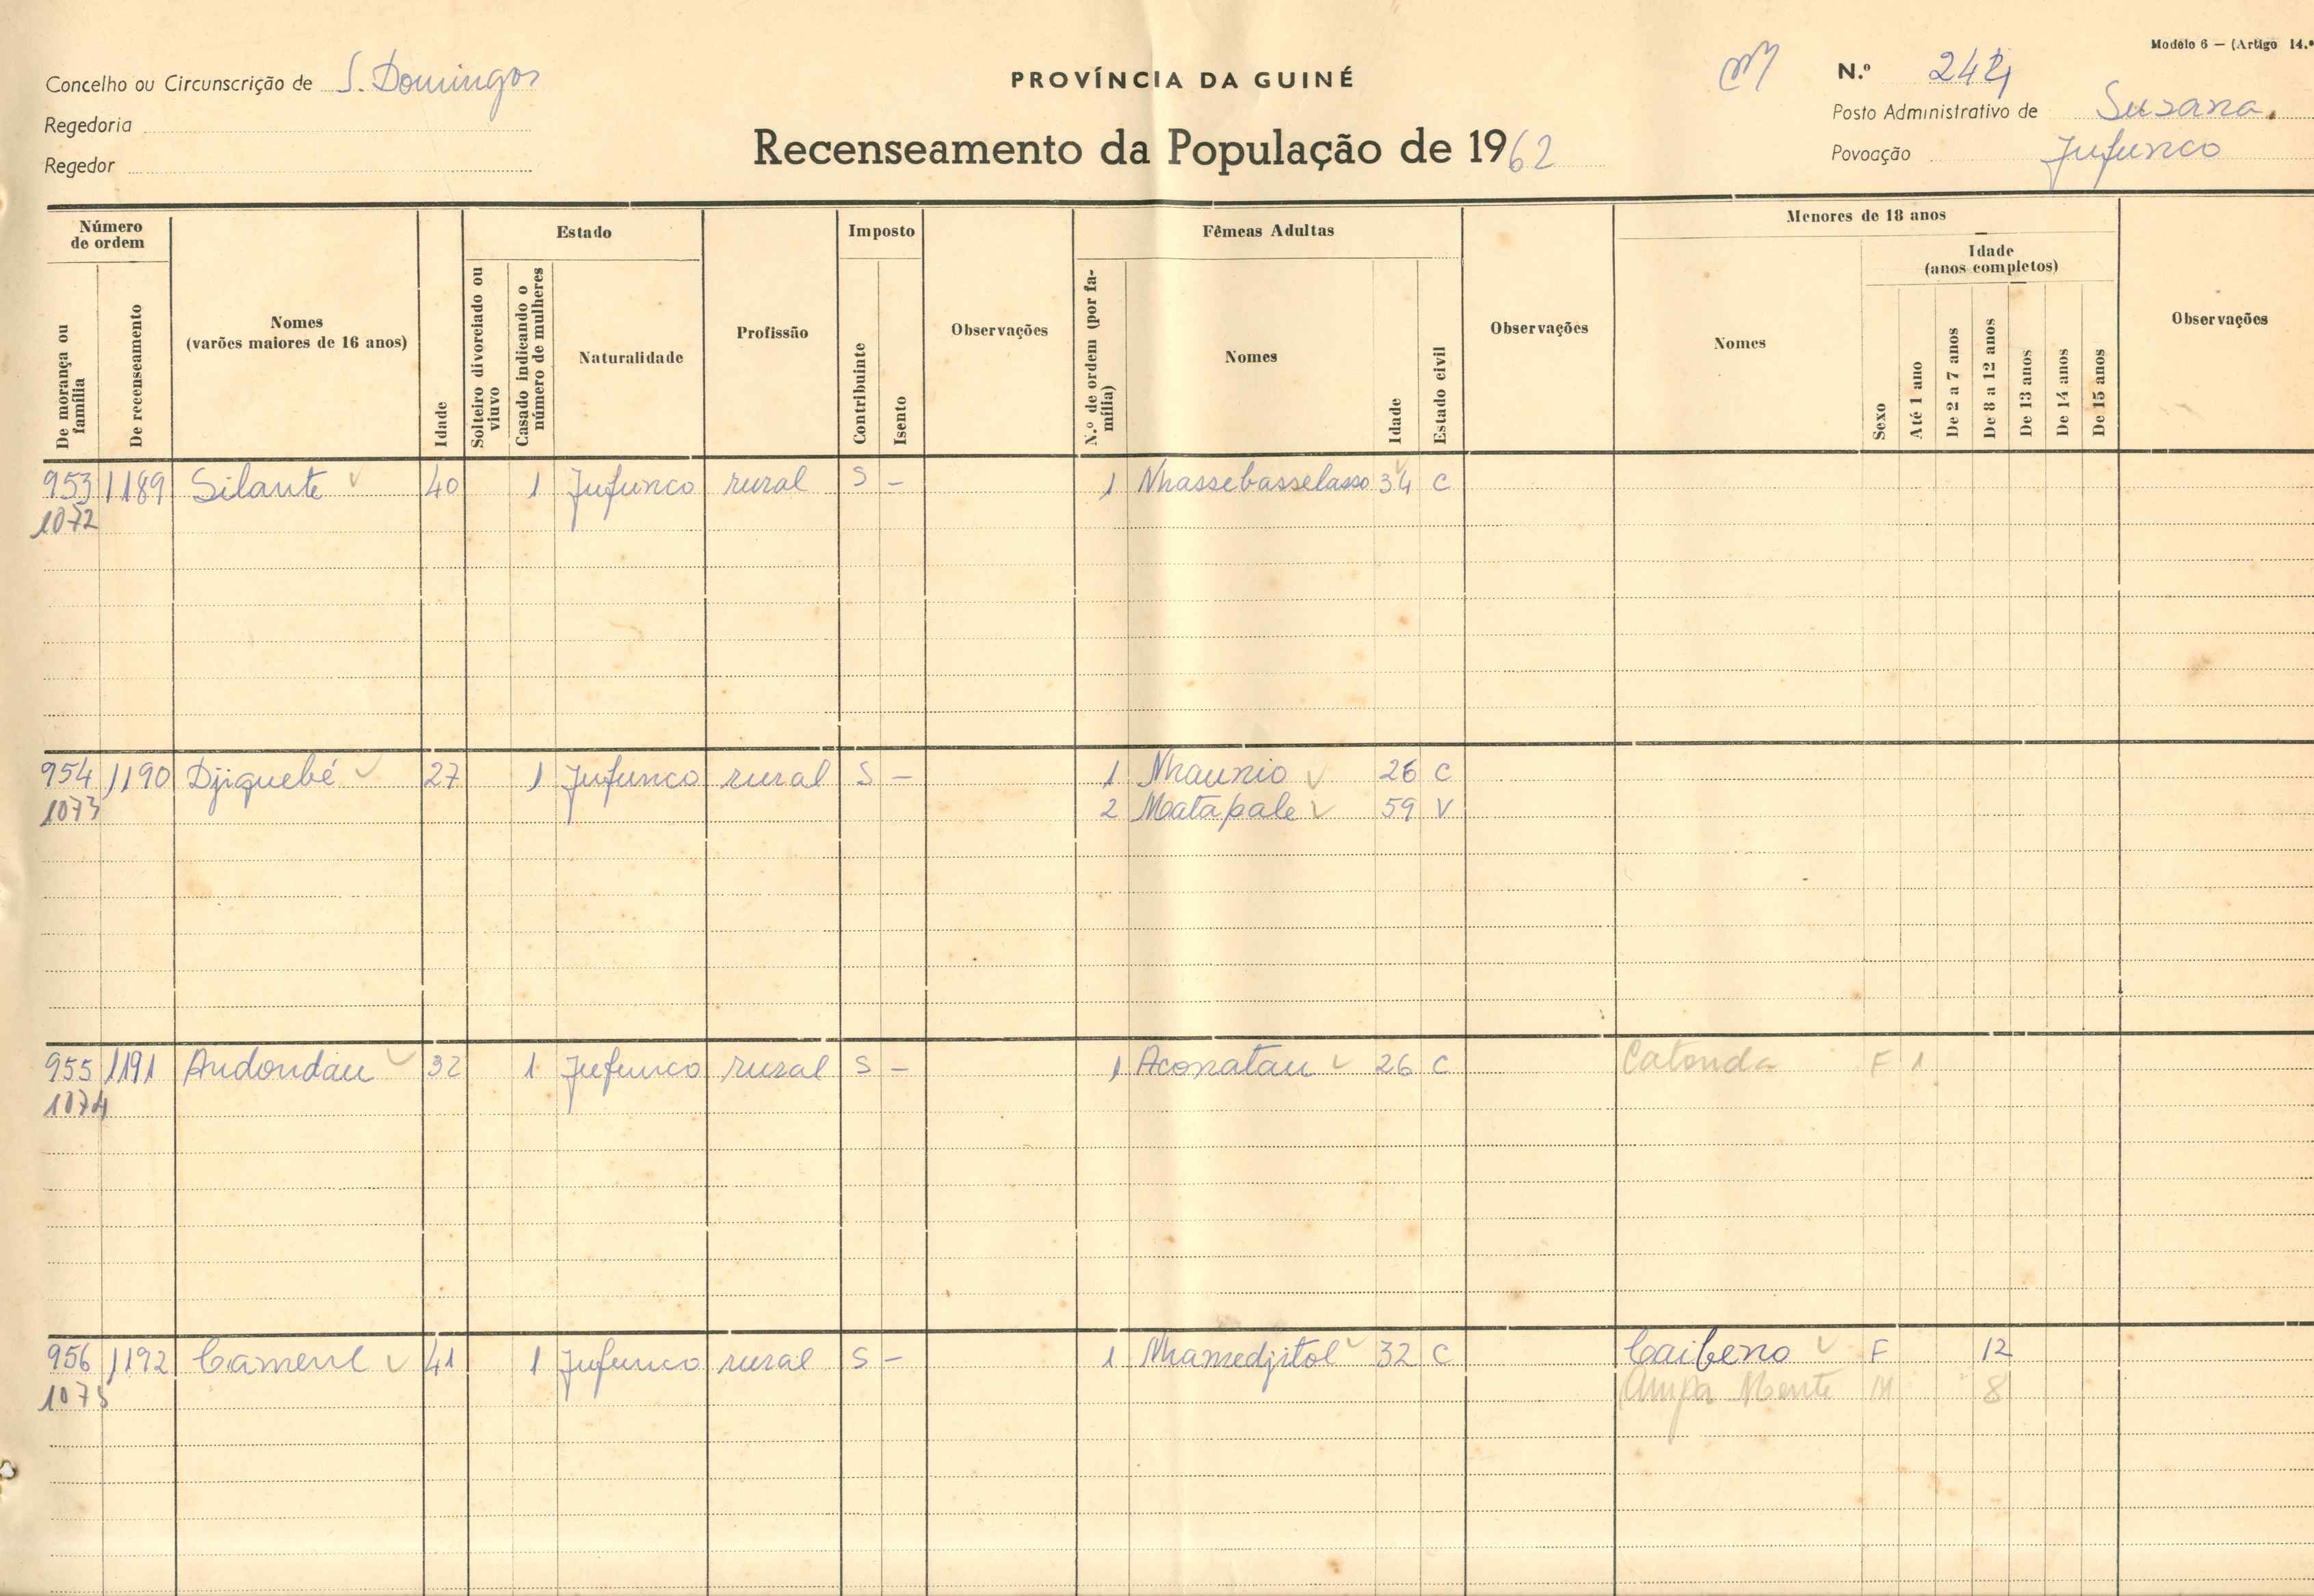 Modelo 6 — (Artigo 14.º
Concelho ou Circunscrição de S. Domingos
PROVÍNCIA DA GUINÉ
N.º
Regedoria
Posto Administrativo de Suzana.
Regedor
Recenseamento da População de 1962
Povoação Jufunco
Número de ordem
De morança ou família
De recenseamento
Nomes
(varões maiores de 16 anos)
Idade
Estado
Solteiro divorciado ou viuvo
Casado indicando o número de mulheres
Naturalidade
Profissão
Imposto
Contribuinte
Isento
Observações
Fêmeas Adultas
N.º de ordem (por família)
Nomes
Idade
Estado civil
Observações
Menores de 18 anos
Nomes
Idade
(anos completos)
Sexo
Até 1 ano
De 2 a 7 anos
De 8 a 12 anos
De 13 anos
De 14 anos
De 15 anos
Observações
953 1189 Silante 40 1 Jufunco rural S – 1 Nhassebasselasso 34 C
1072
954 1190 Djiquebé 27 1 Jufunco rural S – 1 Nhaunio 26 C
1073 2 Matapale 59 V
955 1191 Andondau 32 1 Jufunco rural S – 1 Aconatau 26 C Catonda F 1
1074
956 1192 Camenl 41 1 Jufunco rural S – 1 Nhamedjitol 32 C Caibeno F 12
1075 M 8